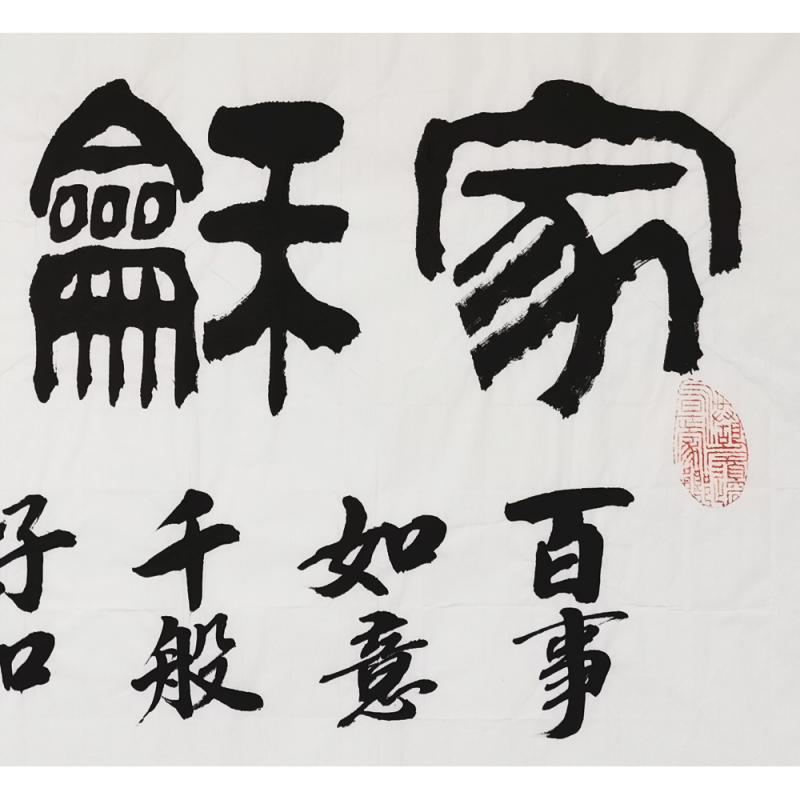 家龢
百事
如意
千般